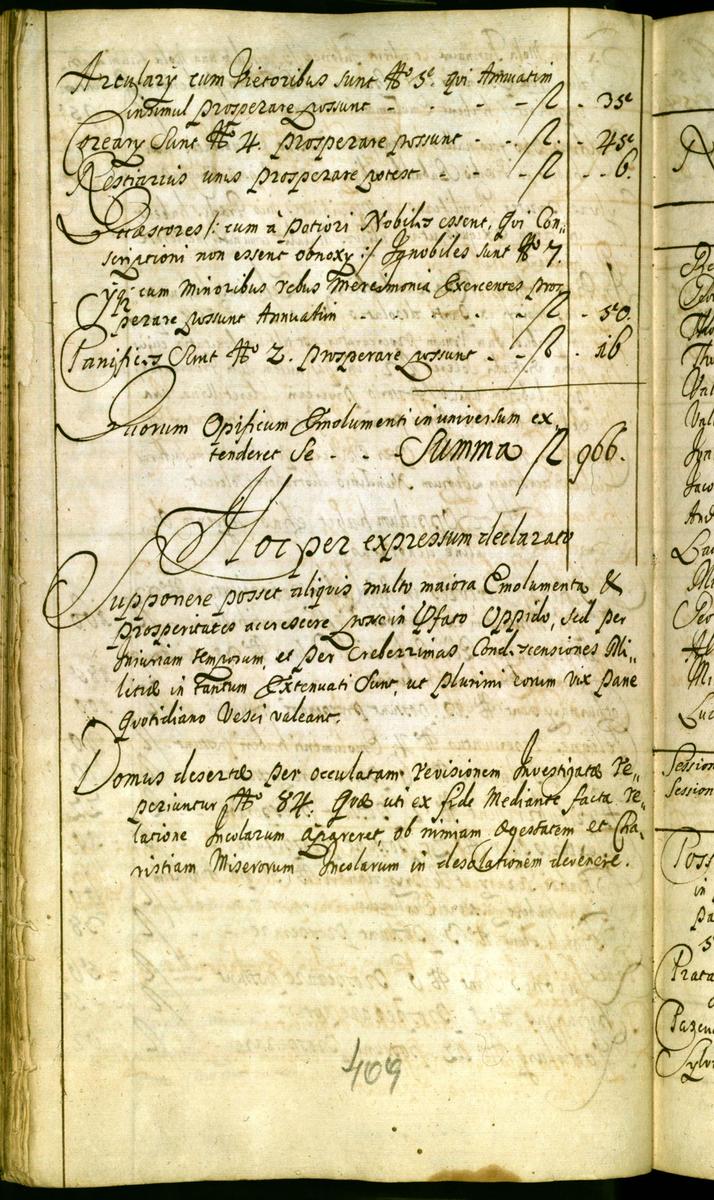 Arculary cum Vietoribus sunt No 5. qui Annuatim
insimul prosperare possunt - - - - fl - 35
Coreary Sunt No 4. prosperare possunt - - fl. - 45
Restiarius unus prosperare potest - - - fl - - 6.
Quæstores /: cum à potiori Nobiles essent, qui Con„
scriptioni non essent obnoxy :/ Ignobiles sunt No 7.
Yq cum minoribus rebus mercimonia Exercentes pros
perare possunt Annuatim - - - - fl - 50.
Panifices Sunt No 2. prosperare possunt - - fl - 16
Quorum Opificum Emolumenti in universum ex„
tenderet Se - - - Summa fl 966.
Hoc per expressum declarato
Supponere posset aliquis multo maiora Emolumenta &
prosperitates accrescere posse in Pfato Oppido, sed per
Injuriam temporum, et per Creberrimas Condescensiones Mi„
litiæ in tantum Extenuati Sunt, ut plurimi eorum vix pane
quotidiano Vesci valeant.
Domus desertæ per occulatam revisionem Investigatæ re„
periuntur No 84. Quæ uti ex fide Mediante facta re„
latione Incolarum appareret, ob nimiam ægestatem et Cha„
ristiam Miserorum Incolarum in desolationem devenere.
409
Session
Session
Poss
in
pa
Prata
Sylv